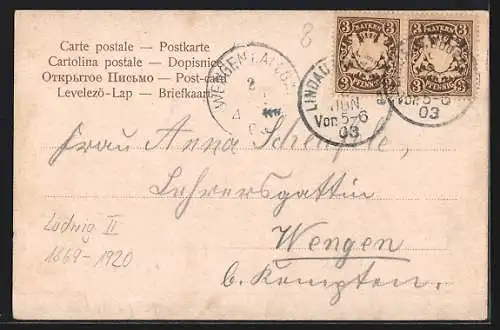 Carte postale — Postkarte
Cartolina postale — Dopisnice
Открытое Письмо — Post-card
Levelező-Lap — Briefkaart
8
3 BAYERN 3
PFENNIG
3 BAYERN 3
PFENNIG
WENGEN
2
4
LINDAU
JUN
Vor. 5-6
03
Vor. 5-6
03
Frau Anna
Lehrersgattin
Wengen
b. Kempten.
Ludwig II
1869-1920